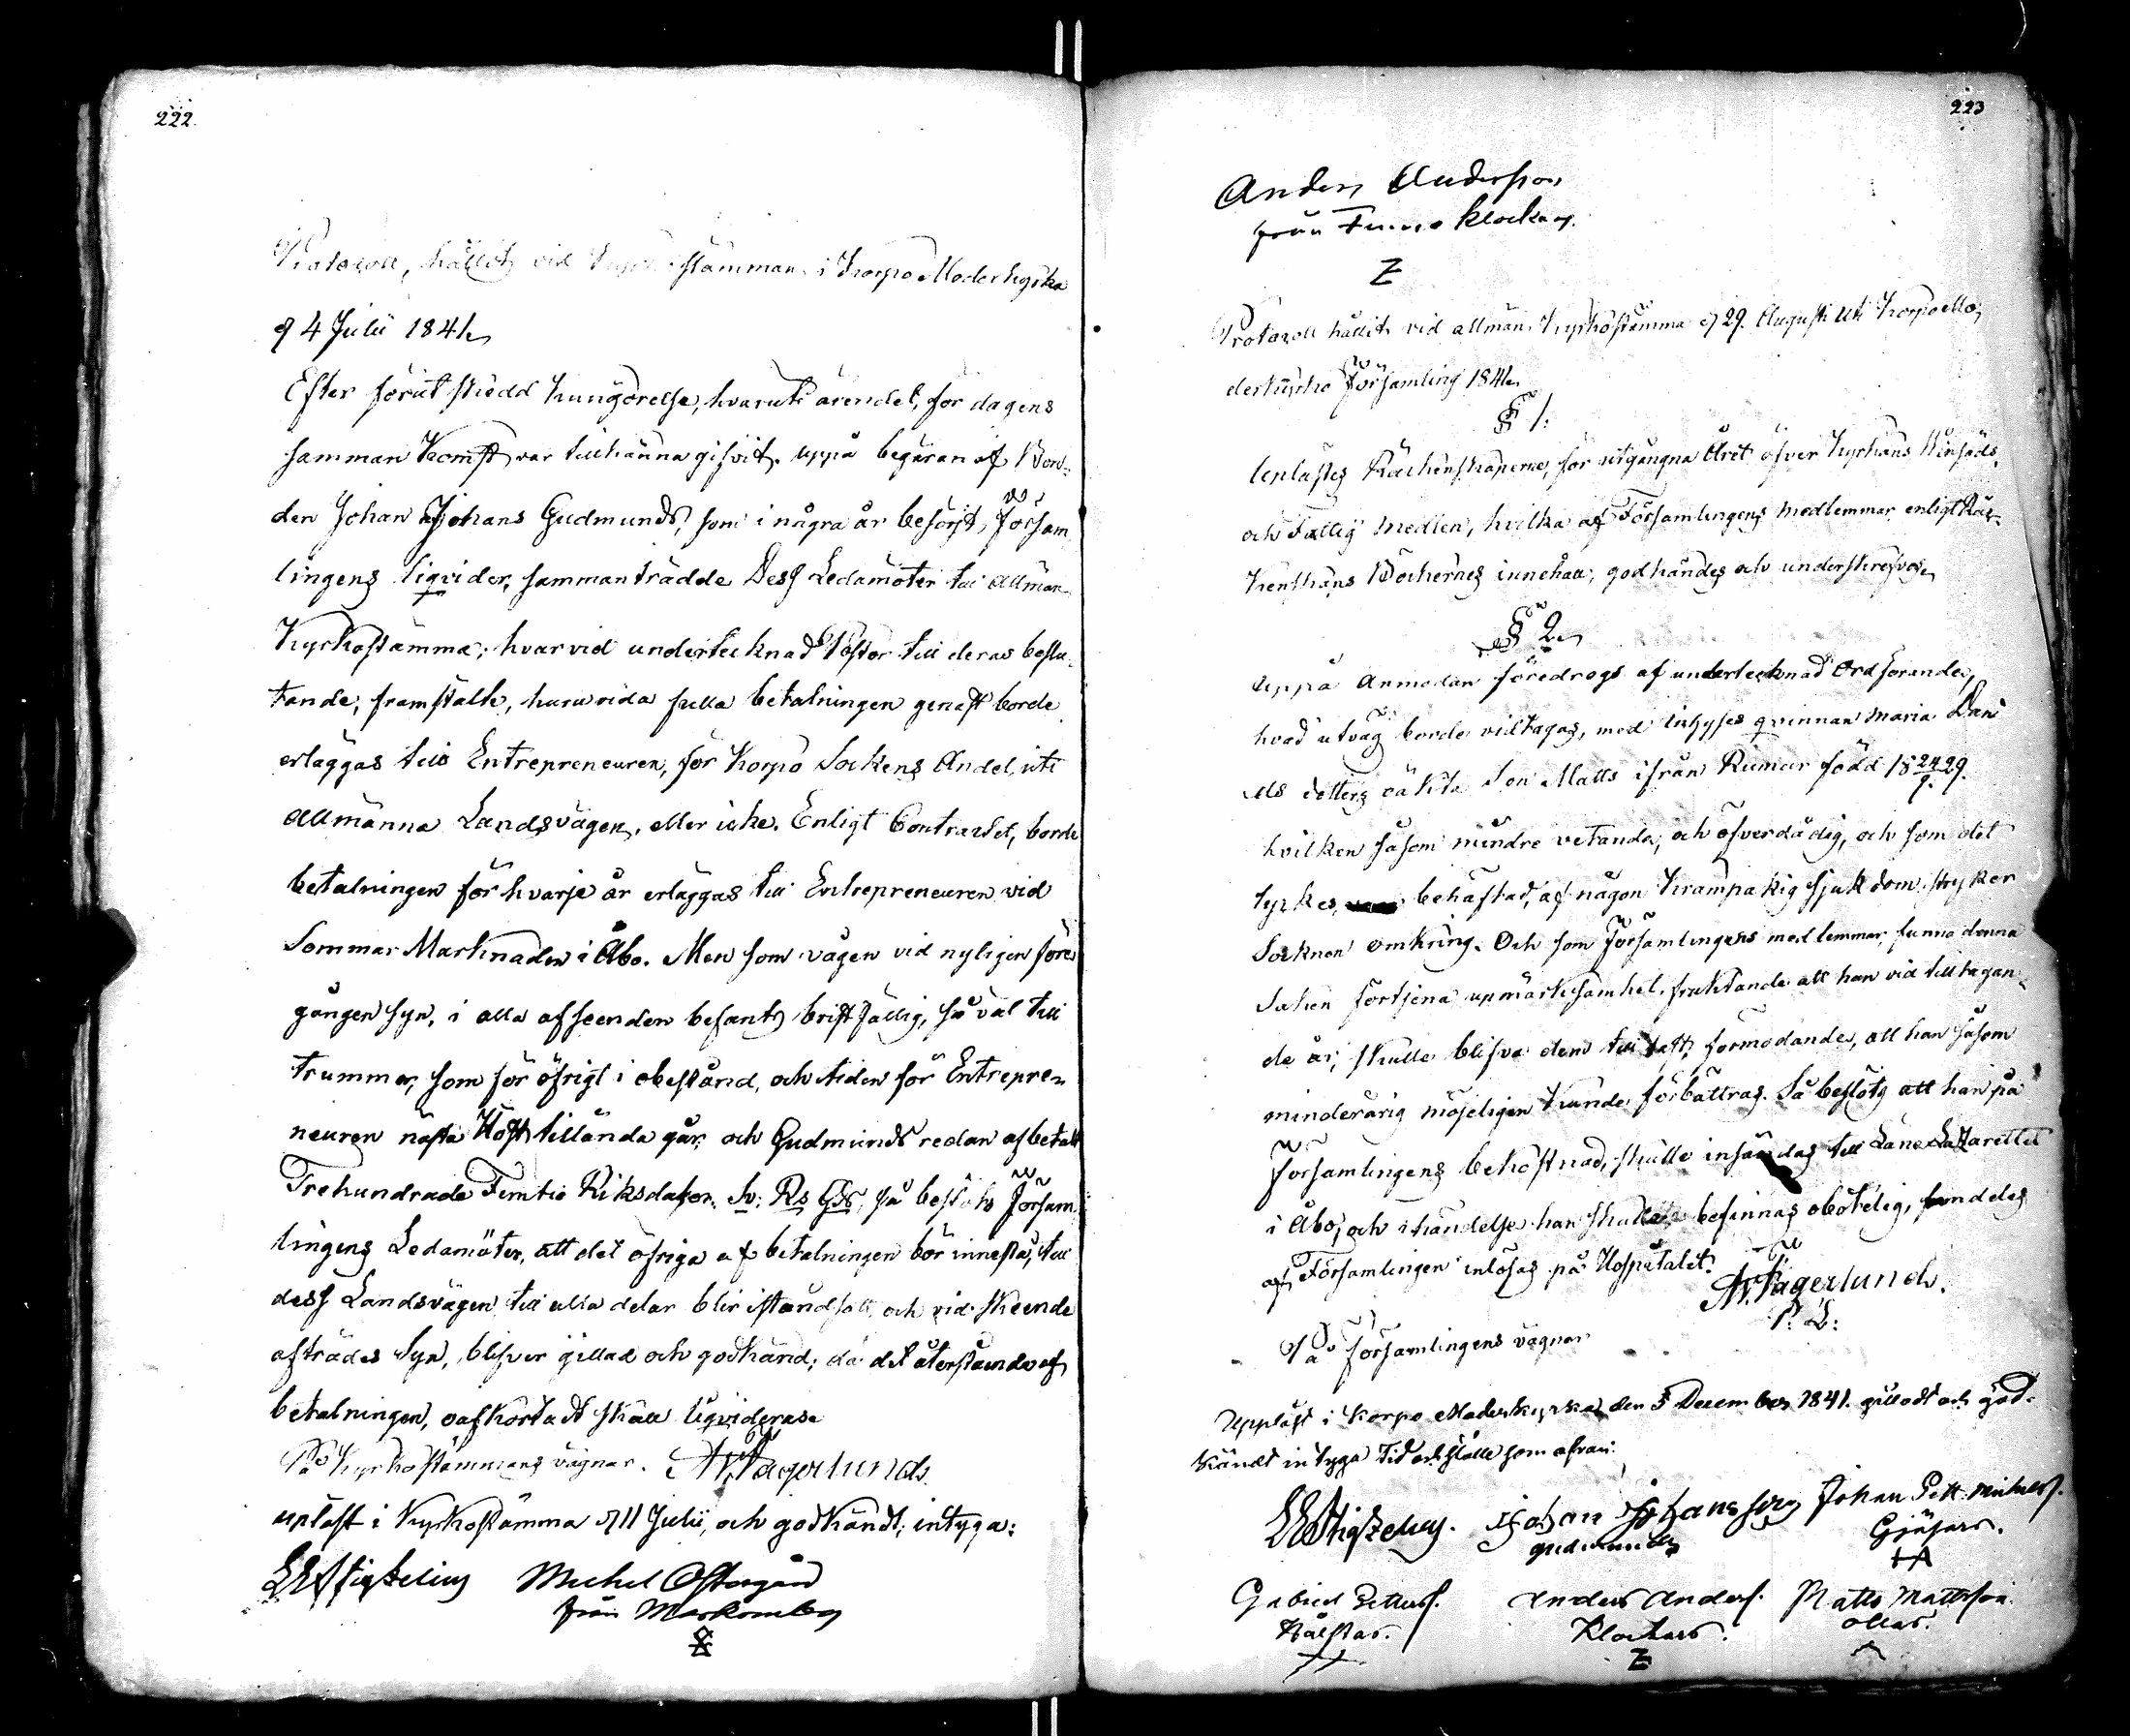 222.
Protocoll, hållit vid Kyrkostämman i Korpo Moderkyrka
d 4 Julii 1841.
Efter förut skedd kungörelse, hvaruti ärendet, för dagens
sammankomst var tillkänna gifvit, uppå begäran af Bon-
den Johan Johans Gudmunds, som i några år besörjt, Försam
lingens liqvider, sammanträdde Dess Ledamöter till Allmän
Kyrkostämma; hvarvid undertecknad Pastor till deras beslu-
tande, framstälte, huruvida fulla betalningen genast borde
erläggas till Entrepreneuren, för Korpo Sockens Andel, uti
Allmänna Landsvägen, eller icke. Enligt Contractet, borde
betalningen för hvarje år erläggas till Entrepreneuren vid
Sommar Marknaden i Åbo. Men som vägen vid nyligen före
gången syn, i alla afseenden befants bristfällig, så väl till
trummor, som för öfrigt i obestånd, och tiden för Entrepre-
neuren nästa Höst tilländagår, och Gudmunds redan afbetalt
Trehundrade Femtio Riksdaler, Sv: Rs Gds, så beslöts Försam
lingens Ledamöter, att det öfriga af betalningen bör innestå, till
dess Landsvägen till alla delar blir iståndsatt och vid skeende
afträdes Syn, blifver gillad och godkänd; då det återstående af
betalningen, oafkortadt skall liqvideras.
På Kyrkostämmans vägnar. A. W. Fagerlund.
upläst i Kyrkostämma d 11 Julii, och godkändt, intyga:
Michel Östergård
från Markomby
223
Anders Andersson
från Finno Klockars.
Z
Protocoll hållit vid allmän Kyrkostämma d 29. Augusti uti Korpo Mo-
derkyrko Församling 1841.
§ 1.
Uplästes Räckenskaperne, för utgångna Året öfver Kyrkans Kinsäds
och Fattig medlen, hvilka af Församlingens medlemmar enligt Räc-
kenskaps Böckernes innehåll, godkändes och underskrefvos.
§ 2.
Uppå Anmodan föredrogs af undertecknad Ordförande,
hvad utväg borde vidtagas, med inhyses qvinnan Maria Dani
els dotters oäkta Son Matts ifrån Rumar född 18 24/9 29.
hvilken såsom mindre vetande, och öfverdådig, och som det
tyckes, behäftad, af någon krampaktig sjukdom, stryker
Socknen omkring. Och som Församlingens medlemmar, funno denna
Saken förtjena upmärksamhet, fruktande att han vid tilltagan-
de år, skulle blifva dem till last, förmodande, att han såsom
minderårig möjeligen kunde förbättras. Så beslöts att han på
Församlingens bekostnad, skulle insändas till Läns Lazarettet
i Åbo, och i händelse han skulle befinnas obotelig, fundeles
af Församlingen inlösas på Hospitalet.
A. W. Fagerlund.
P. L:
På Församlingens vägnar
Uppläst i Korpo Moderkyrka den 5 December 1841. gilladt och god-
kändt intyga tid och ställe som ofvan:
Johan Johansson
Gudmunds
Johan Pett. Michelss.
Gjäsars.
Gabriel Petterss.
Anders Anderss.
Klockars.
Z
Matts Mattsson
Ollas.